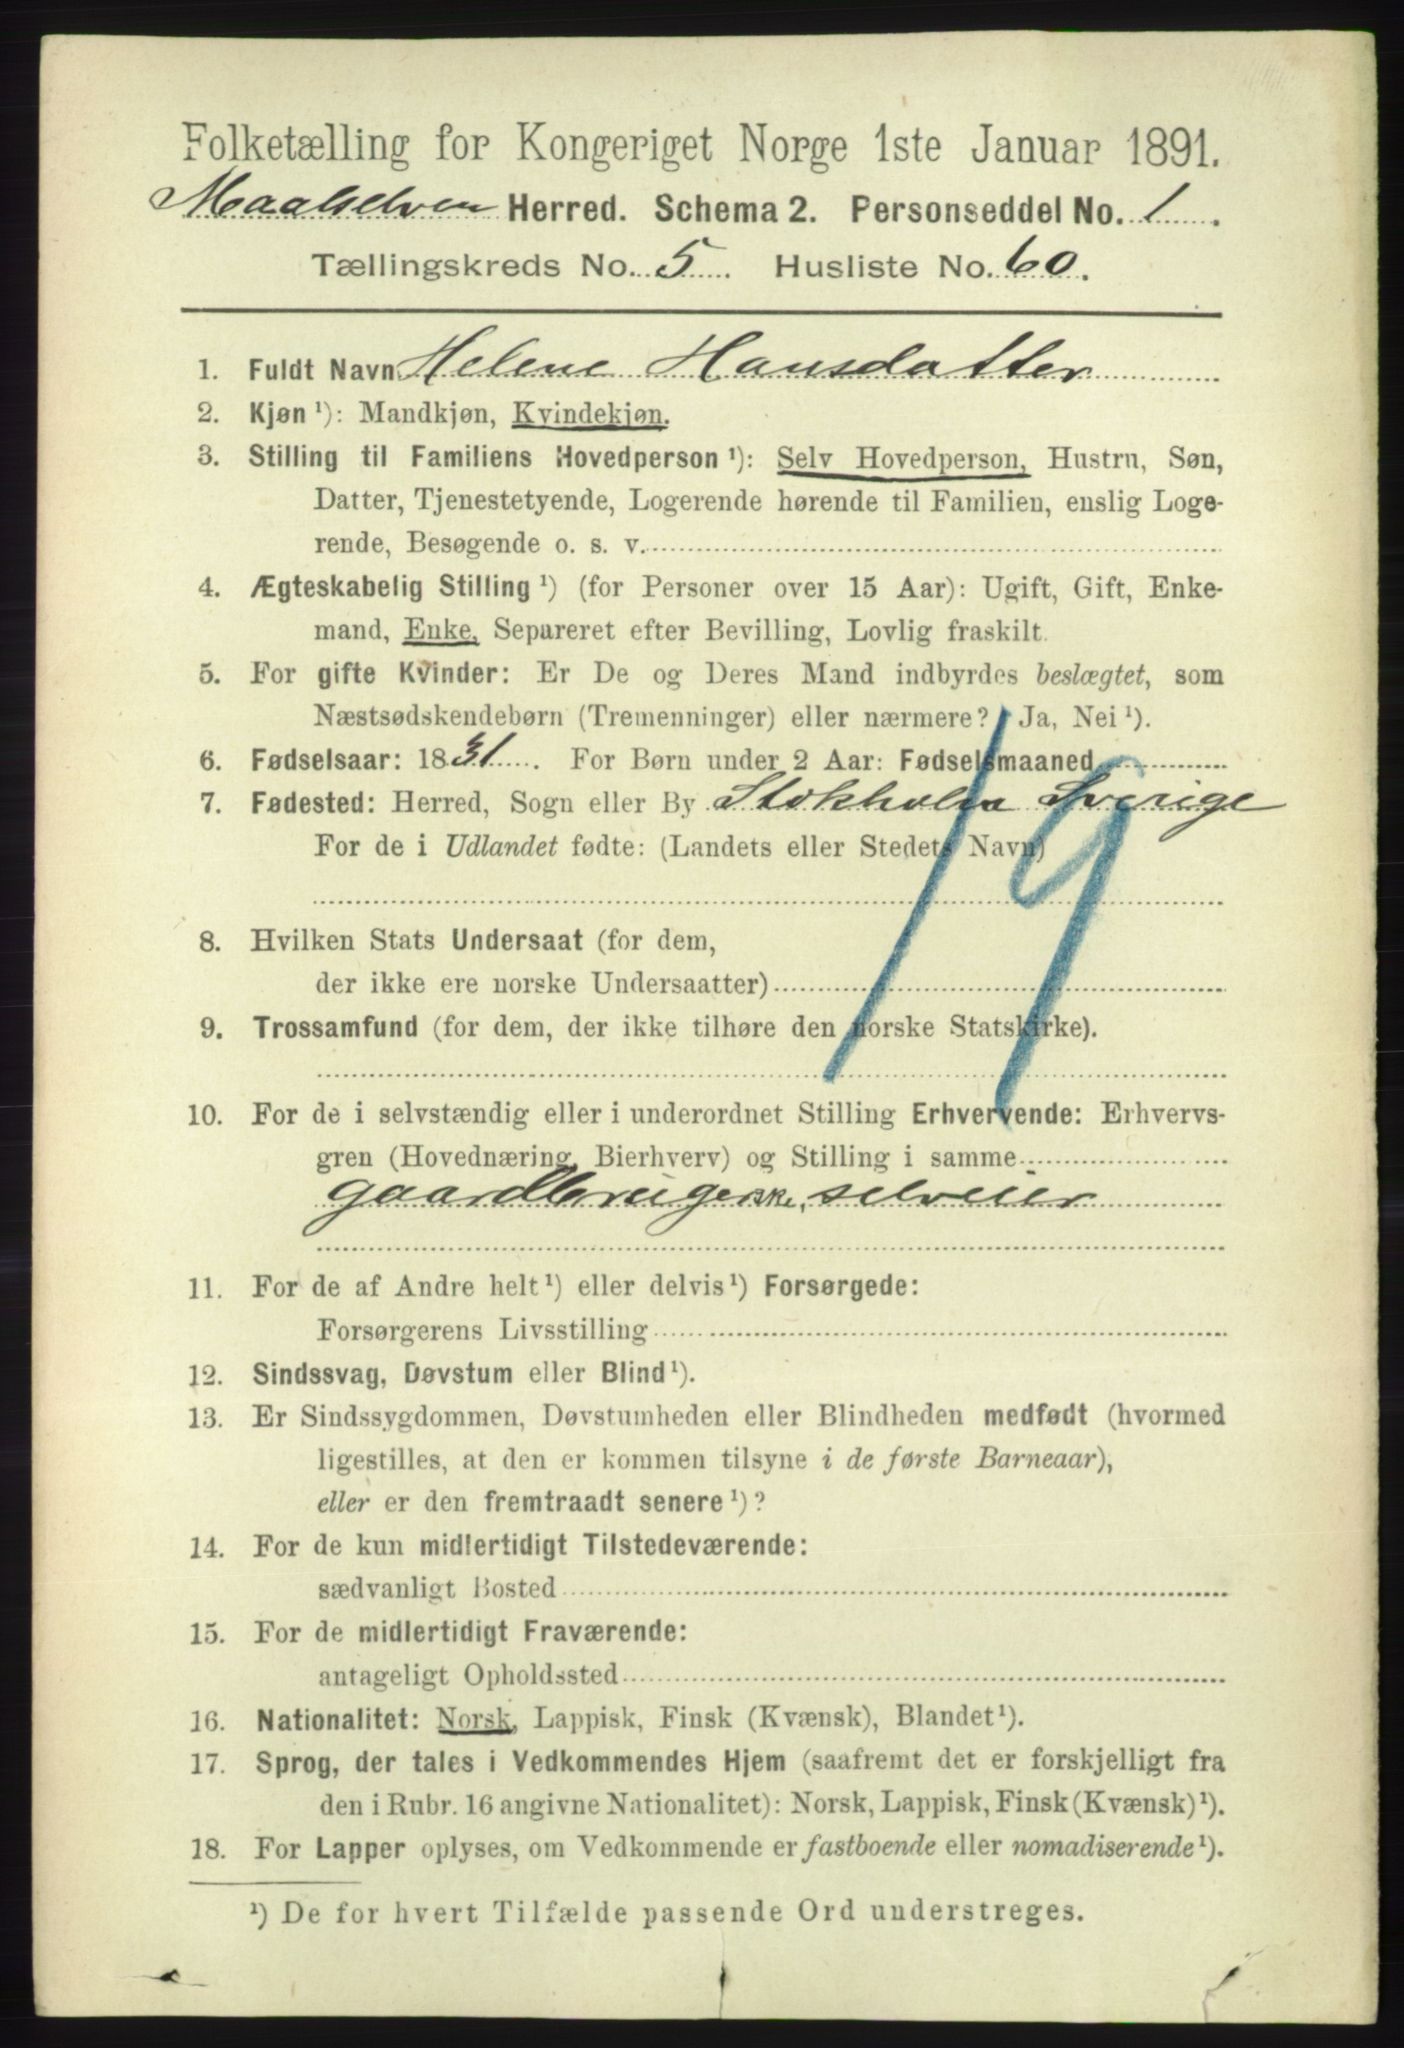 Folketælling for Kongeriget Norge 1ste Januar 1891.
Maalselven Herred. Schema 2. Personseddel No. 1.
Tællingskreds No. 5. Husliste No. 60.
1. Fuldt Navn Helene Hansdatter
2. Kjøn ¹): Mandkjøn, Kvindekjøn.
3. Stilling til Familiens Hovedperson ¹): Selv Hovedperson, Hustru, Søn,
Datter, Tjenestetyende, Logerende hørende til Familien, enslig Loge-
rende, Besøgende o. s. v.
4. Ægteskabelig Stilling ¹) (for Personer over 15 Aar): Ugift, Gift, Enke-
mand, Enke, Separeret efter Bevilling, Lovlig fraskilt.
5. For gifte Kvinder: Er De og Deres Mand indbyrdes beslægtet, som
Næstsødskendebørn (Tremenninger) eller nærmere? Ja, Nei ¹).
6. Fødselsaar: 1831. For Børn under 2 Aar: Fødselsmaaned
7. Fødested: Herred, Sogn eller By Stokholm Sverige
For de i Udlandet fødte: (Landets eller Stedets Navn)
19
8. Hvilken Stats Undersaat (for dem,
der ikke ere norske Undersaatter)
9. Trossamfund (for dem, der ikke tilhøre den norske Statskirke).
10. For de i selvstændig eller i underordnet Stilling Erhvervende: Erhvervs-
gren (Hovednæring, Bierhverv) og Stilling i samme
gaardbrugerske, selveier
11. For de af Andre helt ¹) eller delvis ¹) Forsørgede:
Forsørgerens Livsstilling
12. Sindssvag, Døvstum eller Blind ¹).
13. Er Sindssygdommen, Døvstumheden eller Blindheden medfødt (hvormed
ligestilles, at den er kommen tilsyne i de første Barneaar),
eller er den fremtraadt senere ¹)?
14. For de kun midlertidigt Tilstedeværende:
sædvanligt Bosted
15. For de midlertidigt Fraværende:
antageligt Opholdssted
16. Nationalitet: Norsk, Lappisk, Finsk (Kvænsk), Blandet ¹).
17. Sprog, der tales i Vedkommendes Hjem (saafremt det er forskjelligt fra
den i Rubr. 16 angivne Nationalitet): Norsk, Lappisk, Finsk (Kvænsk) ¹).
18. For Lapper oplyses, om Vedkommende er fastboende eller nomadiserende ¹).
¹) De for hvert Tilfælde passende Ord understreges.